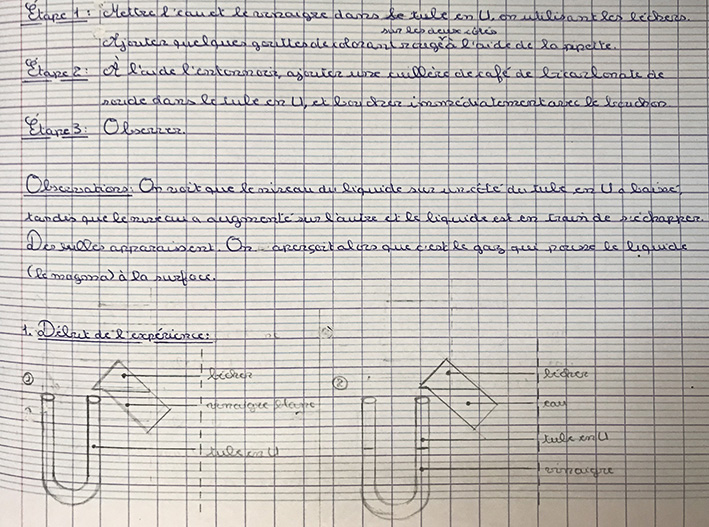 Étape 1: Mettre l'eau et le vinaigre dans le tube en U, en utilisant les béchers.
sur les deux côtés
Ajouter quelques gouttes de colorant rouge à l'aide de la pipette.
Étape 2: À l'aide de l'entonnoir, ajouter une cuillère de café de bicarbonate de
soude dans le tube en U, et boucher immédiatement avec le bouchon
Étape 3: Observer.
Observations: On voit que le niveau du liquide sur un côté du tube en U a baissé,
tandis que le niveau a augmenté sur l'autre et le liquide est en train de s'échapper.
Des bulles apparaissent. On aperçoit alors que c'est le gaz qui pousse le liquide
(le magma) à la surface.
1. Début de l'expérience:
① bécher
vinaigre blanc
tube en U
② bécher
eau
tube en U
vinaigre